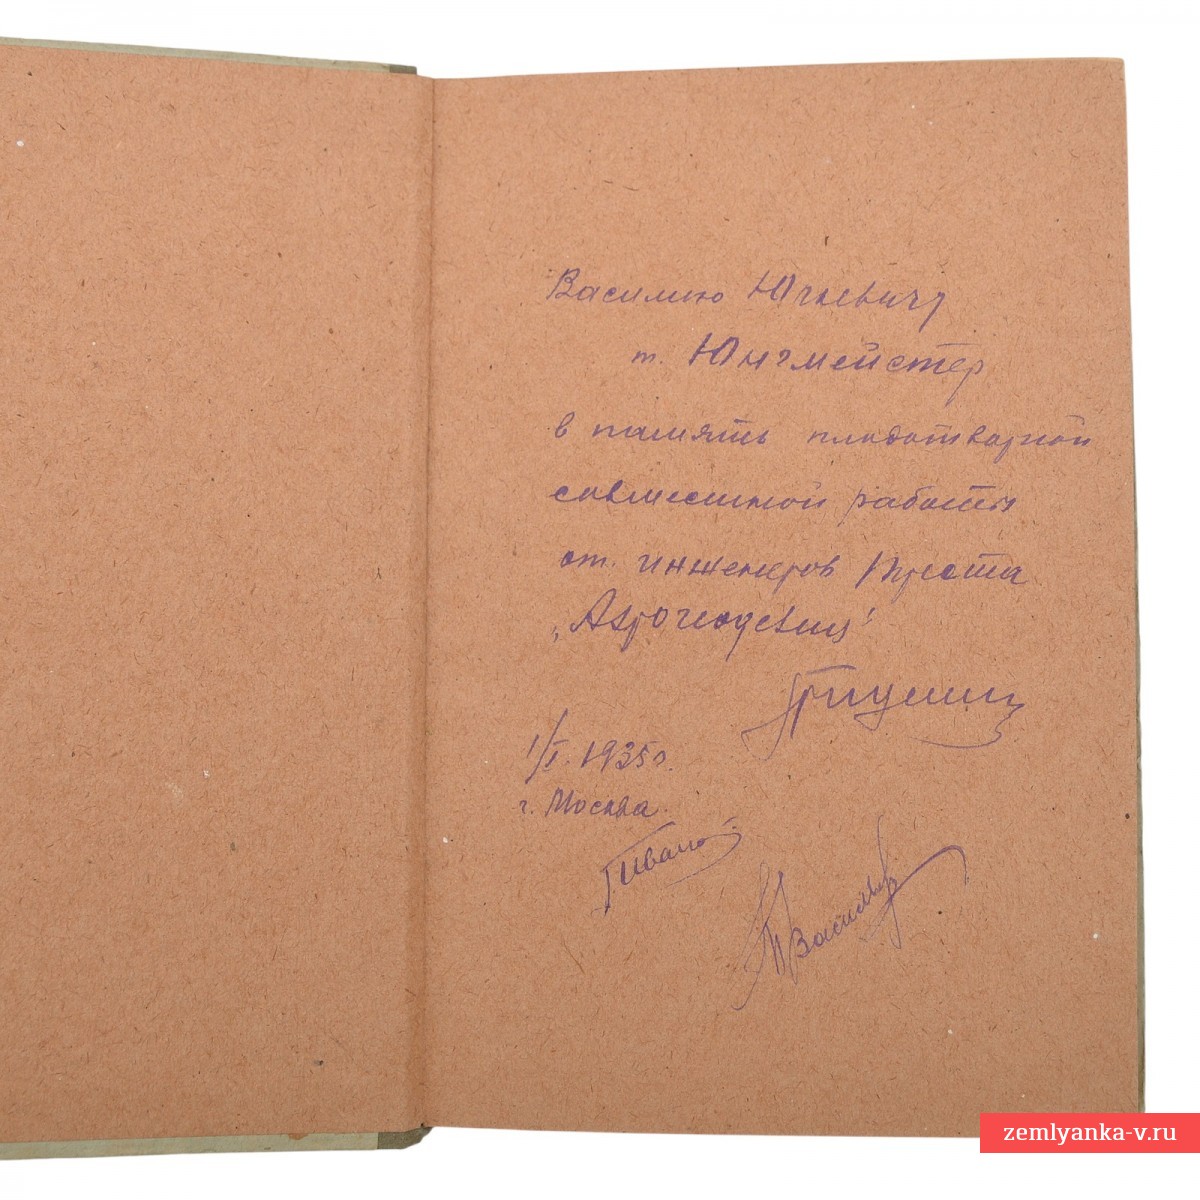 Василию Юльевичу
т. Юнгмейстер
в память плодотворной
совместной работы
от инженеров Треста
„Аэрогеодезии"
1/I. 1935 г.
г. Москва.
Иванов
Васильев
zemlyanka-v.ru